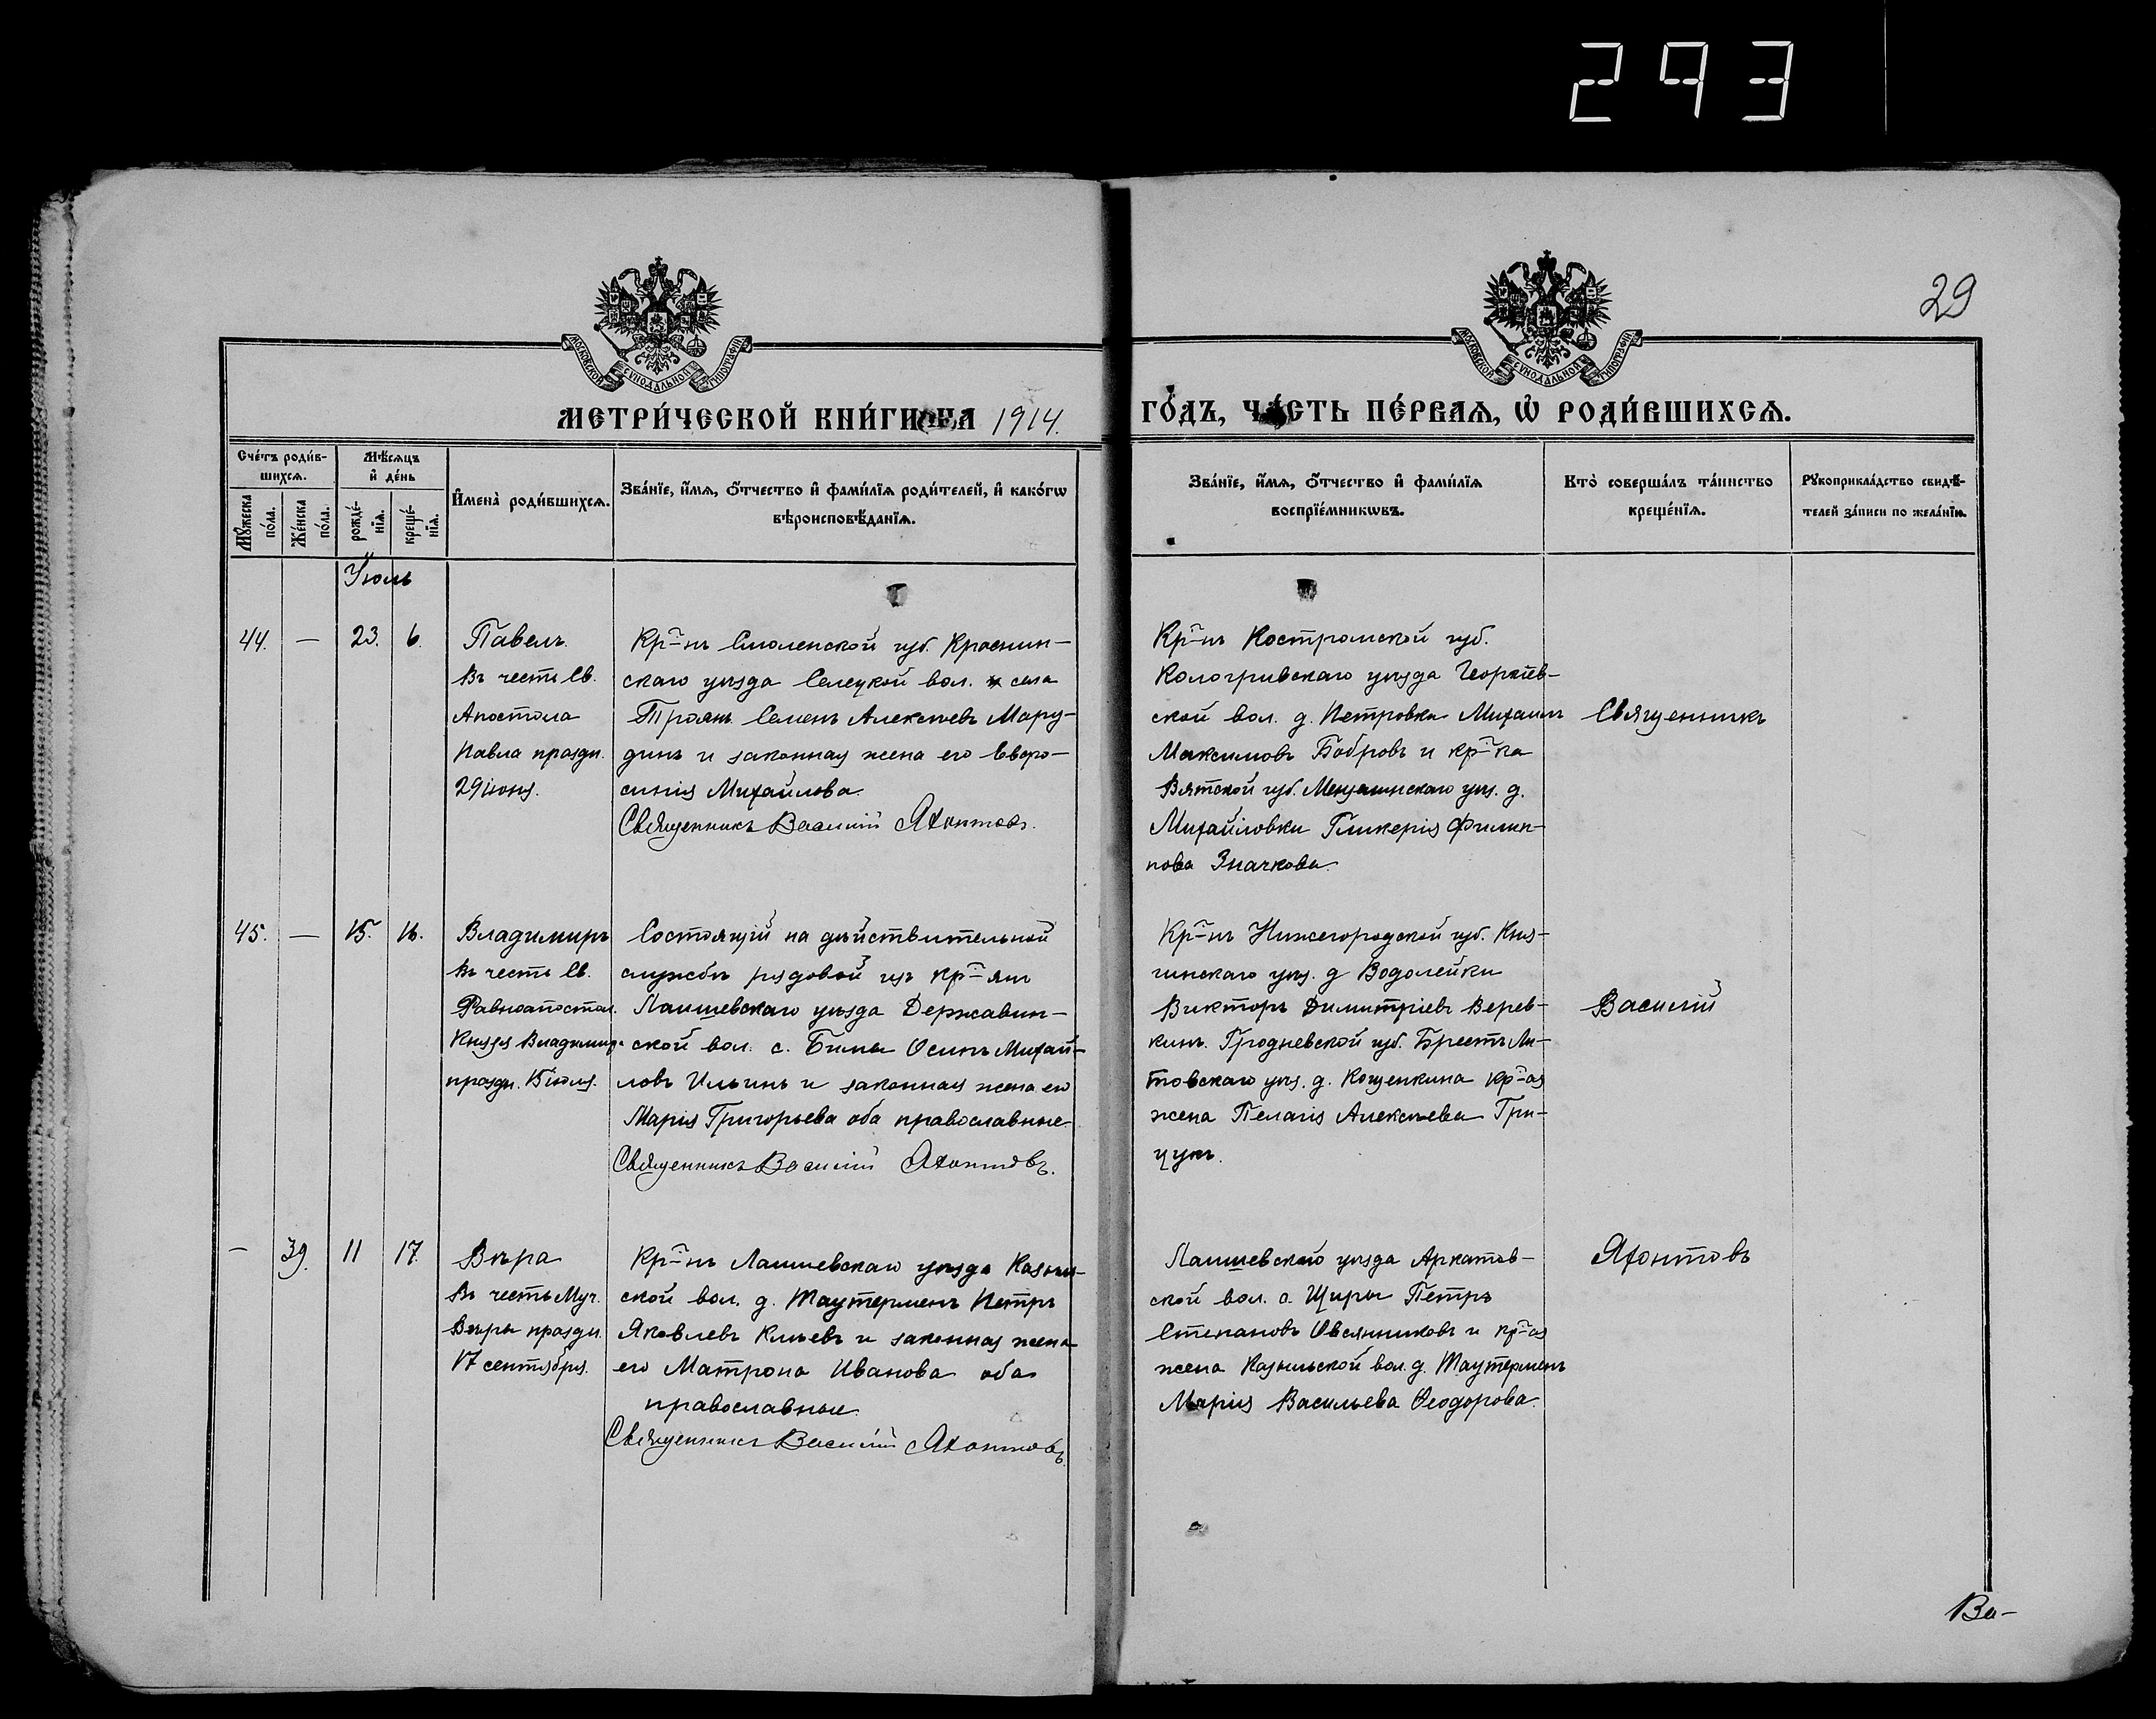 293
29
МОСКОВСКОЙ СѴНОДАЛЬНОЙ ТИПОГРАФІИ
МОСКОВСКОЙ СѴНОДАЛЬНОЙ ТИПОГРАФІИ
МЕТРИ́ЧЕСКОЙ КНИ́ГИ НА 1914.
ГО́ДЪ, ЧА́СТЬ ПЕ́РВАЯ, Ѡ РОДИ́ВШИХСЯ.
Сче́тъ роди́в-
шихся.
Мꙋ́жеска по́ла.
Же́нска по́ла.
Мѣ́сяцъ
и҆ де́нь
рожде́-
нїя.
креще́-
нїя.
И҆мена̀ роди́вшихся.
Зва́нїе, и҆́мя, ѻ҆́тчество и҆ фами́лїя роди́телей, и҆ како́гѡ
вѣроисповѣ́данїя.
Зва́нїе, и҆́мя, ѻ҆́тчество и҆ фами́лїя
воспрїе́мникѡвъ.
Кто̀ соверша́лъ та́инство
креще́нїя.
Рꙋкоприкла́дство свидѣ́-
телей за́писи по жела́нїю.
Іюль
44. — 23. 6.
Павелъ.
Въ честь Св.
Апостола
Павла праздн.
29 іюня.
Кр-нъ Смоленской губ. Краснин-
скаго уѣзда Селецкой вол. села
Троянъ Семенъ Алексѣевъ Мару-
динъ и законная жена его Евфро-
синія Михайлова.
Священникъ Василій Яхонтовъ.
Кр-нъ Костромской губ.
Кологривскаго уѣзда Георгіев-
ской вол. д. Петровка Михаилъ
Максимовъ Бобровъ и кр-ка
Вятской губ. уѣз. д.
Михайловки Гликерія Филип-
пова Значкова.
Священникъ
45. — 15. 16.
Владимиръ
Въ честь Св.
Равноапостол.
Князя Владимир.
праздн. 15 іюля.
Состоящій на дѣйствительной
службѣ рядовой изъ кр-ян
Лаишевскаго уѣзда Державин-
ской вол. с. Бимы Осипъ Михай-
ловъ Ильинъ и законная жена его
Марія Григорьева оба православные
Священникъ Василій Яхонтовъ.
Кр-нъ Нижегородской губ. Кня-
гинскаго уѣз. д Водолейки
Викторъ Димитріевъ Верев-
кинъ. Гродневской губ. Брестъ Ли-
товскаго уѣз. д. Кощенкина кр-ая
жена Пелагія Алексѣева Гри-
цукъ.
Василій
— 39. 11 17.
Вѣра
Въ честь Муч.
Вѣры праздн.
17 сентября.
Кр-нъ Лаишевскаго уѣзда Казыл-
ской вол. д. Таутерменъ Петръ
Яковлевъ Клюевъ и законная жена
его Матрона Иванова оба
православные.
Священникъ Василій Яхонтовъ.
Лаишевскаго уѣзда Аркатов-
ской вол. с. Щиры Петръ
Степановъ Овсянниковъ и кр-ая
жена Казыльской вол. д. Таутерменъ
Марія Васильева Ѳеодорова.
Яхонтовъ
Ва-